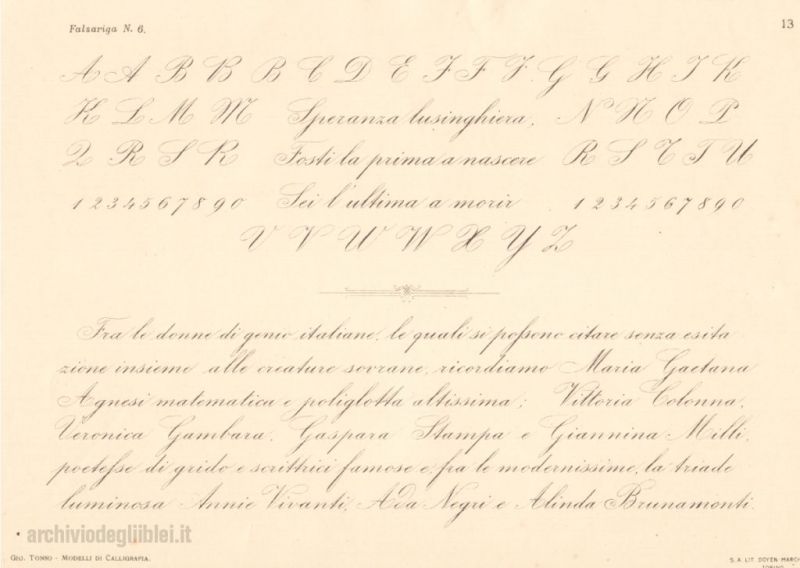 Falsariga N. 6.
13
A A B B B C D E F F F G G H I K
K L M M Speranza lusinghiera, N N O P
Q R S R Fosti la prima a nascere R S T T U
1 2 3 4 5 6 7 8 9 0 Sei l'ultima a morir 1 2 3 4 5 6 7 8 9 0
V V W W X Y Z
Fra le donne di genio italiane, le quali si possono citare senza esita
zione insieme alle creature sovrane, ricordiamo Maria Gaetana
Agnesi matematica e poliglotta altissima; Vittoria Colonna,
Veronica Gambara, Gaspara Stampa e Giannina Milli,
poetesse di grido e scrittrici famose e, fra le modernissime, la triade
luminosa Annie Vivanti, Ada Negri e Alinda Brunamonti.
archiviodegliiblei.it
Gio. Tonso - Modelli di Calligrafia.
S. A. LIT. DOYEN-MARCH
TORINO